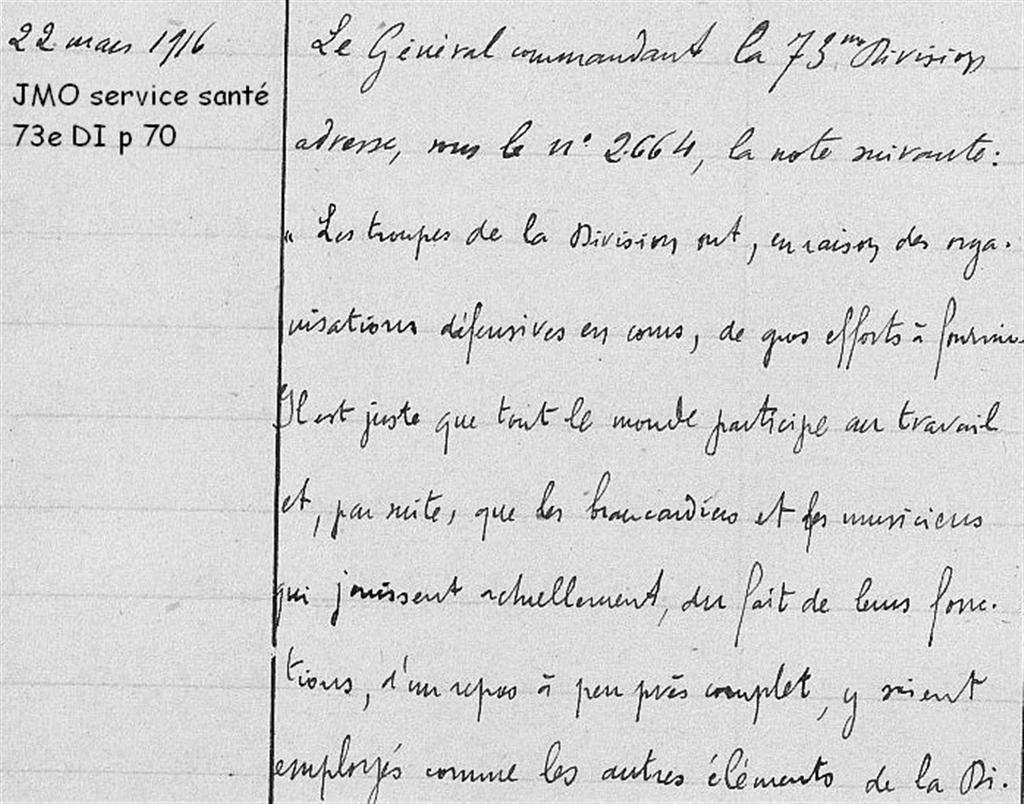 22 mars 1916
JMO service santé
73e DI p 70
Le Général commandant la 73me Division
adresse, sous le n° 2664, la note suivante:
" Les troupes de la Division ont, en raison des orga-
nisations défensives en cours, de gros efforts à fournir.
Il est juste que tout le monde participe au travail
et, par suite, que les brancardiers et les musiciens
qui jouissent actuellement, du fait de leurs fonc-
tions, d'un repos à peu près complet, y soient
employés comme les autres éléments de la Di-